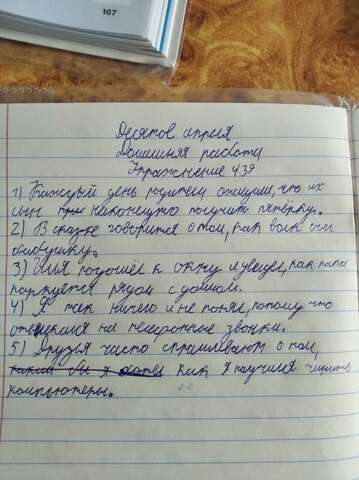 167
Десятое апреля
Домашняя работа
Упражнение 439
1) Каждый день родители ожидали, что их
сын наконец-то получит пятёрку.
2) В сказке говорится о том, как волк съел
бабушку.
3) Илья подошёл к окну и увидел, как папа
паркуется рядом с домом.
4) Я так ничего и не понял, потому что
отвлекался на телефонные звонки.
5) Друзья часто спрашивают о том,
как я научился чинить
компьютеры.